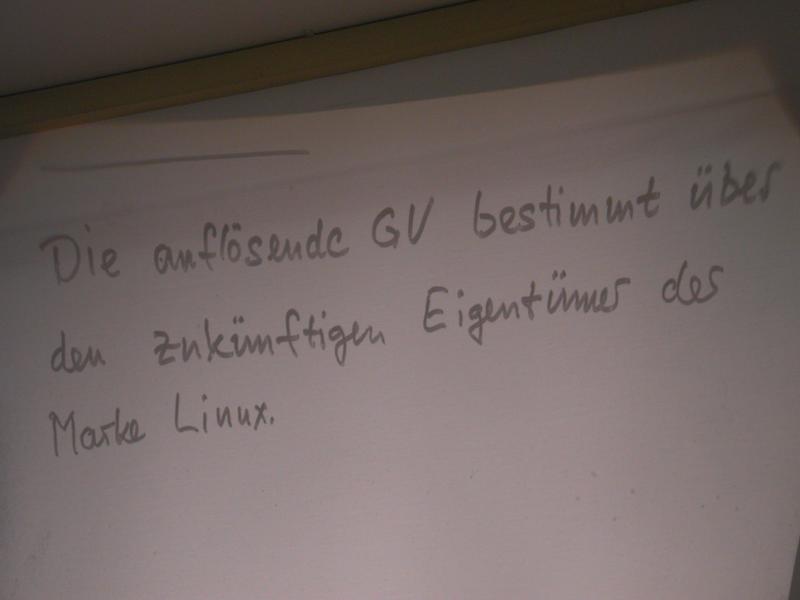 Die auflösende GV bestimmt über
den zukünftigen Eigentümer der
Marke Linux.